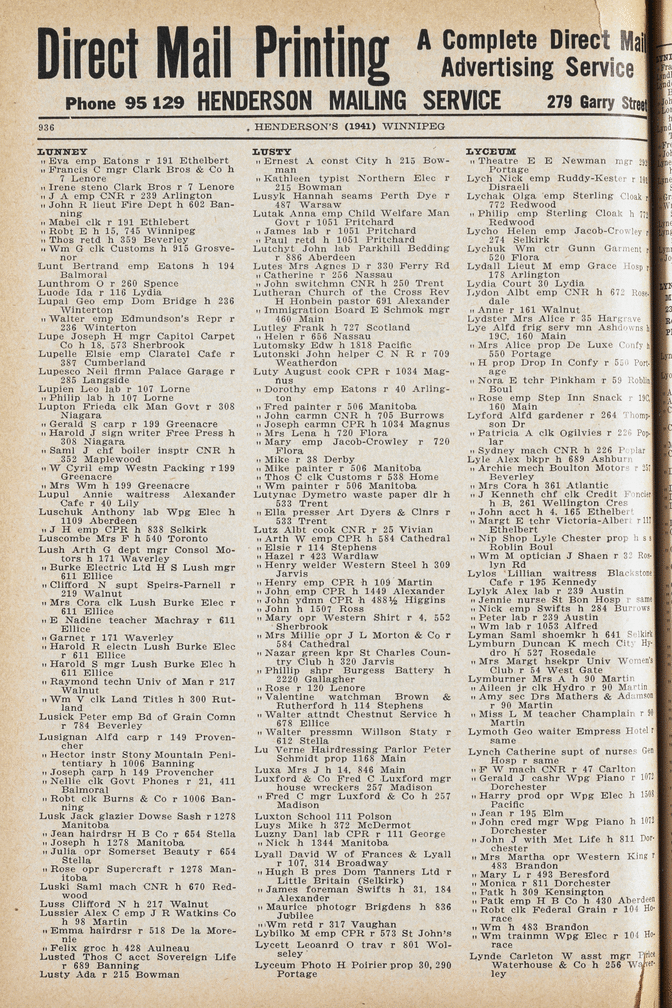 Direct Mail Printing
A Complete Direct Mail
Advertising Service
Phone 95 129 HENDERSON MAILING SERVICE 279 Garry Street
936
HENDERSON'S (1941) WINNIPEG
LUNNEY
" Eva emp Eatons r 191 Ethelbert
" Francis C mgr Clark Bros & Co h
7 Lenore
" Irene steno Clark Bros r 7 Lenore
" J A emp CNR r 239 Arlington
" John R lieut Fire Dept h 602 Ban-
ning
" Mabel clk r 191 Ethlebert
" Robt E h 15, 745 Winnipeg
" Thos retd h 359 Beverley
" Wm G clk Customs h 915 Grosve-
nor
Lunt Bertrand emp Eatons h 194
Balmoral
Lunthrom O r 260 Spence
Luode Ida r 116 Lydia
Lupal Geo emp Dom Bridge h 236
Winterton
" Walter emp Edmundson's Repr r
236 Winterton
Lupe Joseph H mgr Capitol Carpet
Co h 18, 573 Sherbrook
Lupelle Elsie emp Claratel Cafe r
387 Cumberland
Lupesco Neil firmn Palace Garage r
385 Langside
Lupien Leo lab r 107 Lorne
" Philip lab h 107 Lorne
Lupton Frieda clk Man Govt r 308
Niagara
" Gerald S carp r 199 Greenacre
" Harold J sign writer Free Press h
308 Niagara
" Saml J chf boiler insptr CNR h
352 Maplewood
" W Cyril emp Westn Packing r 199
Greenacre
" Mrs Wm h 199 Greenacre
Lupul Annie waitress Alexander
Cafe r 40 Lily
Luschuk Anthony lab Wpg Elec h
1109 Aberdeen
" J H emp CPR h 838 Selkirk
Luscombe Mrs F h 540 Toronto
Lush Arth G dept mgr Consol Mo-
tors h 171 Waverley
" Burke Electric Ltd H S Lush mgr
611 Ellice
" Clifford N supt Speirs-Parnell r
219 Walnut
" Mrs Cora clk Lush Burke Elec r
611 Ellice
" E Nadine teacher Machray r 611
Ellice
" Garnet r 171 Waverley
" Harold R electn Lush Burke Elec
r 611 Ellice
" Harold S mgr Lush Burke Elec h
611 Ellice
" Raymond techn Univ of Man r 217
Walnut
" Wm V clk Land Titles h 300 Rut-
land
Lusick Peter emp Bd of Grain Comn
r 784 Beverley
Lusignan Alfd carp r 149 Proven-
cher
" Hector instr Stony Mountain Peni-
tentiary h 1006 Banning
" Joseph carp h 149 Provencher
" Nellie clk Govt Phones r 21, 411
Balmoral
" Robt clk Burns & Co r 1006 Ban-
ning
Lusk Jack glazier Dowse Sash r 1278
Manitoba
" Jean hairdrsr H B Co r 654 Stella
" Joseph h 1278 Manitoba
" Julia opr Somerset Beauty r 654
Stella
" Rose opr Supercraft r 1278 Man-
itoba
Luski Saml mach CNR h 670 Red-
wood
Luss Clifford N h 217 Walnut
Lussier Alex C emp J R Watkins Co
h 98 Martin
" Emma hairdrsr r 518 De la More-
nie
" Felix groc h 428 Aulneau
Lusted Thos C acct Sovereign Life
r 689 Banning
Lusty Ada r 215 Bowman
LUSTY
" Ernest A const City h 215 Bow-
man
" Kathleen typist Northern Elec r
215 Bowman
Lusyk Hannah seams Perth Dye r
487 Warsaw
Lutak Anna emp Child Welfare Man
Govt r 1051 Pritchard
" James lab r 1051 Pritchard
" Paul retd h 1051 Pritchard
Lutchyt John lab Parkhill Bedding
r 886 Aberdeen
Lutes Mrs Agnes D r 330 Ferry Rd
" Catherine r 256 Nassau
" John switchmn CNR h 250 Trent
Lutheran Church of the Cross Rev
H Honbein pastor 691 Alexander
" Immigration Board E Schmok mgr
460 Main
Lutley Frank h 727 Scotland
" Helen r 656 Nassau
Lutomsky Edw h 1818 Pacific
Lutonski John helper C N R r 709
Weatherdon
Luty August cook CPR r 1034 Mag-
nus
" Dorothy emp Eatons r 40 Arling-
ton
" Fred painter r 506 Manitoba
" John carmn CNR h 705 Burrows
" Joseph carmn CPR h 1034 Magnus
" Mrs Lena h 720 Flora
" Mary emp Jacob-Crowley r 720
Flora
" Mike r 38 Derby
" Mike painter r 506 Manitoba
" Thos C clk Customs r 538 Home
" Wm painter r 506 Manitoba
Lutynac Dymetro waste paper dlr h
533 Trent
" Ella presser Art Dyers & Clnrs r
533 Trent
Lutz Albt cook CNR r 25 Vivian
" Arth W emp CPR h 584 Cathedral
" Elsie r 114 Stephens
" Hazel r 423 Wardlaw
" Henry welder Western Steel h 309
Jarvis
" Henry emp CPR h 109 Martin
" John emp CPR h 1449 Alexander
" John ydmn CPR h 488½ Higgins
" John h 1507 Ross
" Mary opr Western Shirt r 4, 552
Sherbrook
" Mrs Millie opr J L Morton & Co r
584 Cathedral
" Nazar green kpr St Charles Coun-
try Club h 320 Jarvis
" Phillip shpr Burgess Battery h
2220 Gallagher
" Rose r 120 Lenore
" Valentine watchman Brown &
Rutherford h 114 Stephens
" Walter attndt Chestnut Service h
678 Ellice
" Walter pressmn Willson Staty r
612 Stella
Lu Verne Hairdressing Parlor Peter
Schmidt prop 1168 Main
Luxa Mrs J h 14, 846 Main
Luxford & Co Fred C Luxford mgr
house wreckers 257 Madison
" Fred C mgr Luxford & Co h 257
Madison
Luxton School 111 Polson
Luys Mike h 372 McDermot
Luzny Danl lab CPR r 111 George
" Nick h 1344 Manitoba
Lyall David W of Frances & Lyall
r 107, 314 Broadway
" Hugh B pres Dom Tanners Ltd r
Little Britain (Selkirk)
" James foreman Swifts h 31, 184
Alexander
" Maurice photogr Brigdens h 836
Jubilee
" Wm retd r 317 Vaughan
Lybilko M emp CPR r 573 St John's
Lycett Leoanrd O trav r 801 Wol-
seley
Lyceum Photo H Poirier prop 30, 290
Portage
LYCEUM
" Theatre E E Newman mgr 292
Portage
Lych Nick emp Ruddy-Kester r
Disraeli
Lychak Olga emp Sterling Cloak r
772 Redwood
" Philip emp Sterling Cloak h 772
Redwood
Lycho Helen emp Jacob-Crowley r
274 Selkirk
Lychuk Wm ctr Gunn Garment r
520 Flora
Lydall Lieut M emp Grace Hosp r
178 Arlington
Lydia Court 30 Lydia
Lydon Albt emp CNR h 672 Ross-
dale
" Anne r 161 Walnut
Lydster Mrs Alice r 35 Hargrave
Lye Alfd frig serv mn Ashdowns h
19C, 160 Main
" Mrs Alice prop De Luxe Confy h
550 Portage
" H prop Drop In Confy r 550 Port-
age
" Nora E tchr Pinkham r 59 Roblin
Boul
" Rose emp Step Inn Snack r 19C,
160 Main
Lyford Alfd gardener r 264 Thomp-
son Dr
" Patricia A clk Ogilvies r 226 Pop-
lar
" Sydney mach CNR h 226 Poplar
Lyle Alex bkpr h 689 Ashburn
" Archie mech Boulton Motors r 257
Beverley
" Mrs Cora h 361 Atlantic
" J Kenneth chf clk Credit Foncier
h B, 261 Wellington Cres
" John acct h 4, 165 Ethelbert
" Margt E tchr Victoria-Albert r 117
Ethelbert
" Nip Shop Lyle Chester prop h s s
Roblin Boul
" Wm M optician J Shaen r 32 Ros-
lyn Rd
Lylos Lillian waitress Blackstone
Cafe r 195 Kennedy
Lylyk Alex lab r 239 Austin
" Jennie nurse St Bon Hosp r same
" Nick emp Swifts h 284 Burrows
" Peter lab r 239 Austin
" Wm lab r 1053 Alfred
Lyman Saml shoemkr h 641 Selkirk
Lymburn Duncan K mech City Hy-
dro h 527 Rosedale
" Mrs Margt hsekpr Univ Women's
Club r 54 West Gate
Lymburner Mrs A h 90 Martin
" Aileen jr clk Hydro r 90 Martin
" Amy sec Drs Mathers & Adamson
r 90 Martin
" Miss L M teacher Champlain r 90
Martin
Lymoth Geo waiter Empress Hotel r
same
Lynch Catherine supt of nurses Gen
Hosp r same
" F W mach CNR r 47 Carlton
" Gerald J cashr Wpg Piano r 1072
Dorchester
" Harry prod opr Wpg Elec h 1508
Pacific
" Jean r 195 Elm
" John cred mgr Wpg Piano h 1072
Dorchester
" John J with Met Life h 811 Dor-
chester
" Mrs Martha opr Western King r
483 Brandon
" Mary L r 493 Beresford
" Monica r 811 Dorchester
" Patk h 309 Kensington
" Patk emp H B Co h 430 Aberdeen
" Robt clk Federal Grain r 104 Ho-
race
" Wm h 483 Brandon
" Wm trainmn Wpg Elec r 104 Ho-
race
Lynde Carleton W asst mgr Price
Waterhouse & Co h 256 Waver-
ley